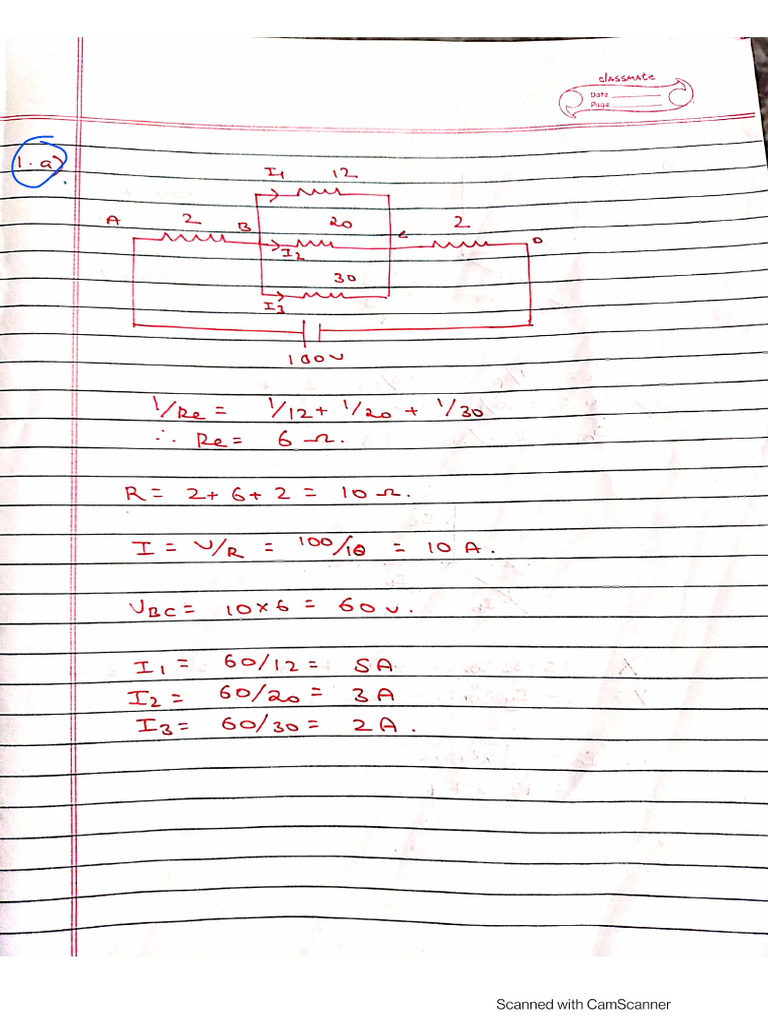 classmate
Date
Page
1. a)
I1 12
A 2 B 20 C 2 D
I2
30
I3
100V
1/Re = 1/12 + 1/20 + 1/30
∴ Re = 6 Ω.
R = 2 + 6 + 2 = 10 Ω.
I = V/R = 100/10 = 10 A.
VBC = 10 × 6 = 60 V.
I1 = 60/12 = 5A.
I2 = 60/20 = 3A
I3 = 60/30 = 2A.
Scanned with CamScanner